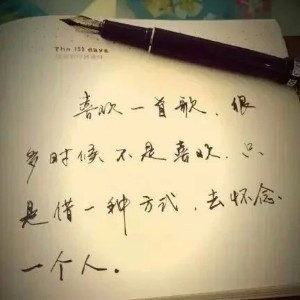 The 153
喜欢一首歌，很
多时候不是喜欢，只
是借一种方式，去怀念
一个人。